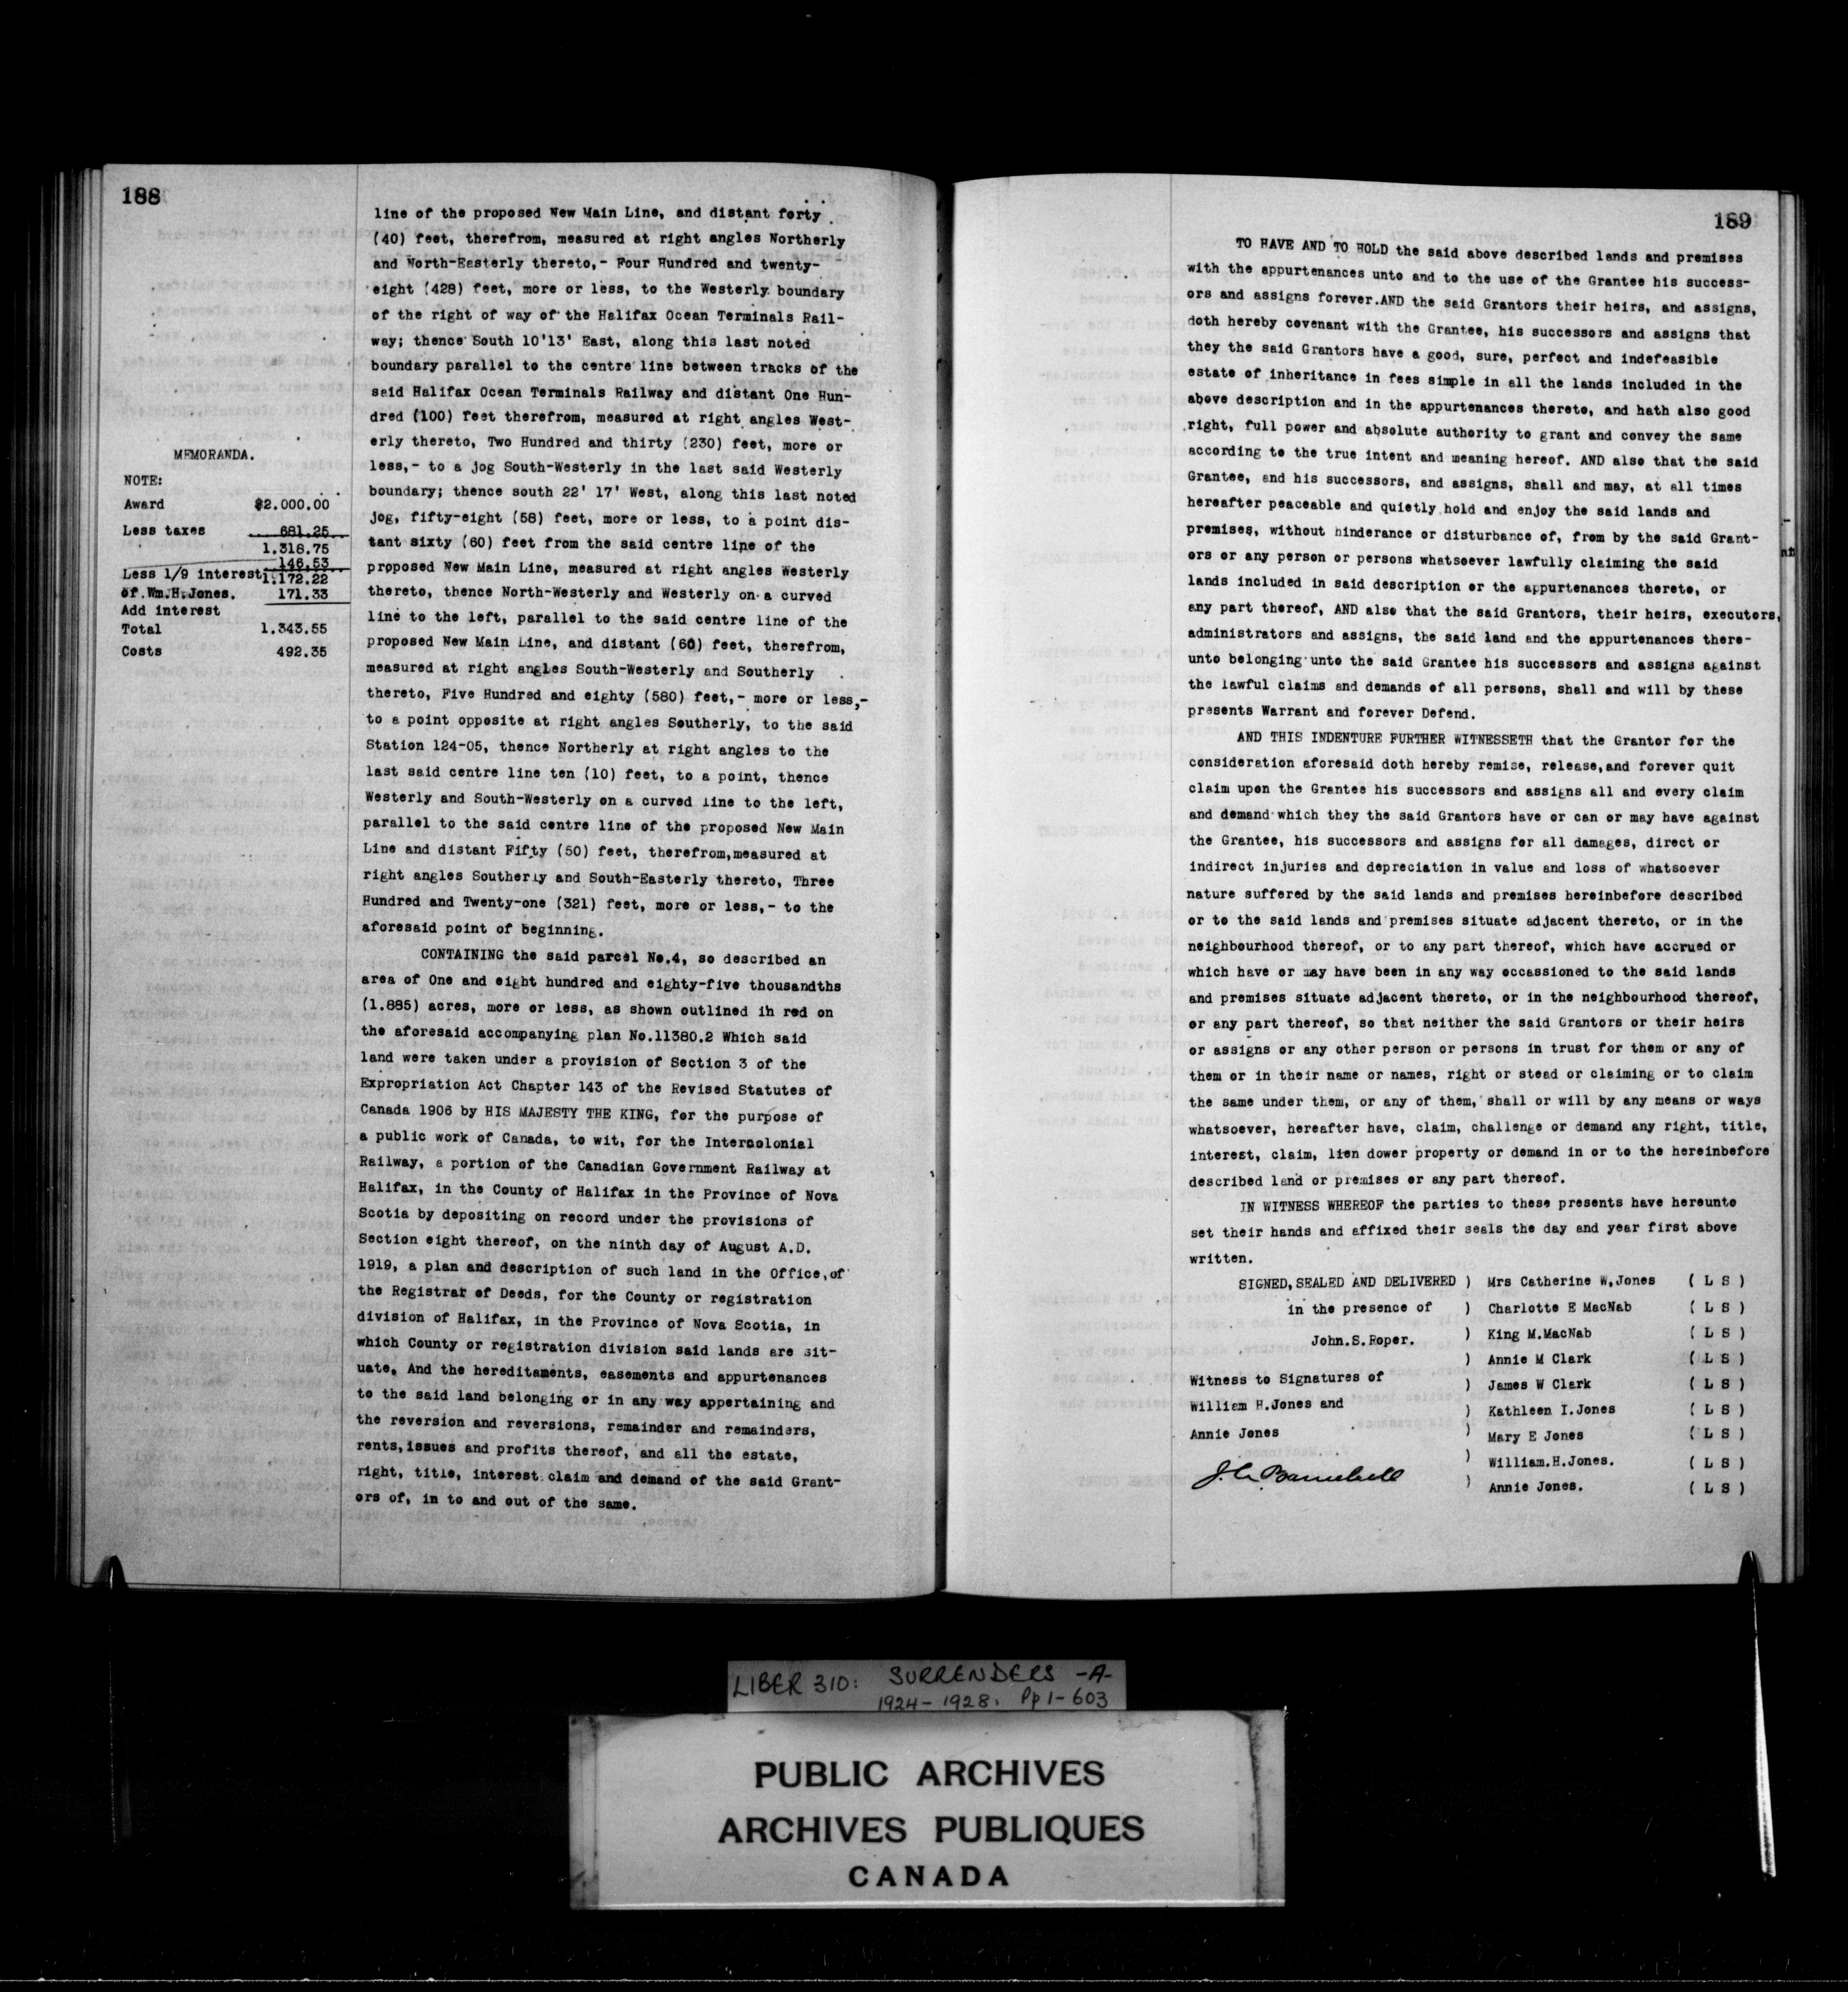 188
line of the proposed New Main Line, and distant forty
(40) feet, therefrom, measured at right angles Northerly
and North-Easterly thereto,- Four Hundred and twenty-
eight (428) feet, more or less, to the Westerly boundary
of the right of way of the Halifax Ocean Terminals Rail-
way; thence South 10'13' East, along this last noted
boundary parallel to the centre line between tracks of the
said Halifax Ocean Terminals Railway and distant One Hun-
dred (100) feet therefrom, measured at right angles West-
erly thereto, Two Hundred and thirty (230) feet, more or
less,- to a jog South-Westerly in the last said Westerly
boundary; thence south 22' 17' West, along this last noted
jog, fifty-eight (58) feet, more or less, to a point dis-
tant sixty (60) feet from the said centre line of the
proposed New Main Line, measured at right angles Westerly
thereto, thence North-Westerly and Westerly on a curved
line to the left, parallel to the said centre line of the
proposed New Main Line, and distant (60) feet, therefrom,
measured at right angles South-Westerly and Southerly
thereto, Five Hundred and eighty (580) feet,- more or less,-
to a point opposite at right angles Southerly, to the said
Station 124-05, thence Northerly at right angles to the
last said centre line ten (10) feet, to a point, thence
Westerly and South-Westerly on a curved line to the left,
parallel to the said centre line of the proposed New Main
Line and distant Fifty (50) feet, therefrom,measured at
right angles Southerly and South-Easterly thereto, Three
Hundred and Twenty-one (321) feet, more or less,- to the
aforesaid point of beginning.
CONTAINING the said parcel No.4, so described an
area of One and eight hundred and eighty-five thousandths
(1.885) acres, more or less, as shown outlined ih red on
the aforesaid accompanying plan No.11380.2 Which said
land were taken under a provision of Section 3 of the
Expropriation Act Chapter 143 of the Revised Statutes of
Canada 1906 by HIS MAJESTY THE KING, for the purpose of
a public work of Canada, to wit, for the Intercolonial
Railway, a portion of the Canadian Government Railway at
Halifax, in the County of Halifax in the Province of Nova
Scotia by depositing on record under the provisions of
Section eight thereof, on the ninth day of August A.D.
1919, a plan and description of such land in the Office,of
the Registrar of Deeds, for the County or registration
division of Halifax, in the Province of Nova Scotia, in
which County or registration division said lands are sit-
uate. And the hereditaments, easements and appurtenances
to the said land belonging or in any way appertaining and
the reversion and reversions, remainder and remainders,
rents,issues and profits thereof, and all the estate,
right, title, interest claim and demand of the said Grant-
ors of, in to and out of the same.
MEMORANDA.
NOTE:
Award $2.000.00
Less taxes 681.25
1.318.75
146.53
Less 1/9 interest 1.172.22
of Wm.H.Jones. 171.33
Add interest
Total 1.343.55
Costs 492.35
189
TO HAVE AND TO HOLD the said above described lands and premises
with the appurtenances unto and to the use of the Grantee his success-
ors and assigns forever.AND the said Grantors their heirs, and assigns,
doth hereby covenant with the Grantee, his successors and assigns that
they the said Grantors have a good, sure, perfect and indefeasible
estate of inheritance in fees simple in all the lands included in the
above description and in the appurtenances thereto, and hath also good
right, full power and absolute authority to grant and convey the same
according to the true intent and meaning hereof. AND also that the said
Grantee, and his successors, and assigns, shall and may, at all times
hereafter peaceable and quietly hold and enjoy the said lands and
premises, without hinderance or disturbance of, from by the said Grant-
ors or any person or persons whatsoever lawfully claiming the said
lands included in said description or the appurtenances thereto, or
any part thereof, AND also that the said Grantors, their heirs, executors,
administrators and assigns, the said land and the appurtenances there-
unto belonging unto the said Grantee his successors and assigns against
the lawful claims and demands of all persons, shall and will by these
presents Warrant and forever Defend.
AND THIS INDENTURE FURTHER WITNESSETH that the Grantor for the
consideration aforesaid doth hereby remise, release,and forever quit
claim upon the Grantee his successors and assigns all and every claim
and demand which they the said Grantors have or can or may have against
the Grantee, his successors and assigns for all damages, direct or
indirect injuries and depreciation in value and loss of whatsoever
nature suffered by the said lands and premises hereinbefore described
or to the said lands and premises situate adjacent thereto, or in the
neighbourhood thereof, or to any part thereof, which have accrued or
which have or may have been in any way occassioned to the said lands
and premises situate adjacent thereto, or in the neighbourhood thereof,
or any part thereof, so that neither the said Grantors or their heirs
or assigns or any other person or persons in trust for them or any of
them or in their name or names, right or stead or claiming or to claim
the same under them, or any of them, shall or will by any means or ways
whatsoever, hereafter have, claim, challenge or demand any right, title,
interest, claim, lien dower property or demand in or to the hereinbefore
described land or premises or any part thereof.
IN WITNESS WHEREOF the parties to these presents have hereunto
set their hands and affixed their seals the day and year first above
written.
SIGNED,SEALED AND DELIVERED ) Mrs Catherine W,Jones ( L S )
in the presence of ) Charlotte E MacNab ( L S )
John.S.Roper. ) King M.MacNab ( L S )
) Annie M Clark ( L S )
Witness to Signatures of ) James W Clark ( L S )
William H.Jones and ) Kathleen I.Jones ( L S )
Annie Jones ) Mary E Jones ( L S )
) William.H.Jones. ( L S )
) Annie Jones. ( L S )
LIBER 310: SURRENDERS -A-
1924-1928. Pp 1-603
PUBLIC ARCHIVES
ARCHIVES PUBLIQUES
CANADA